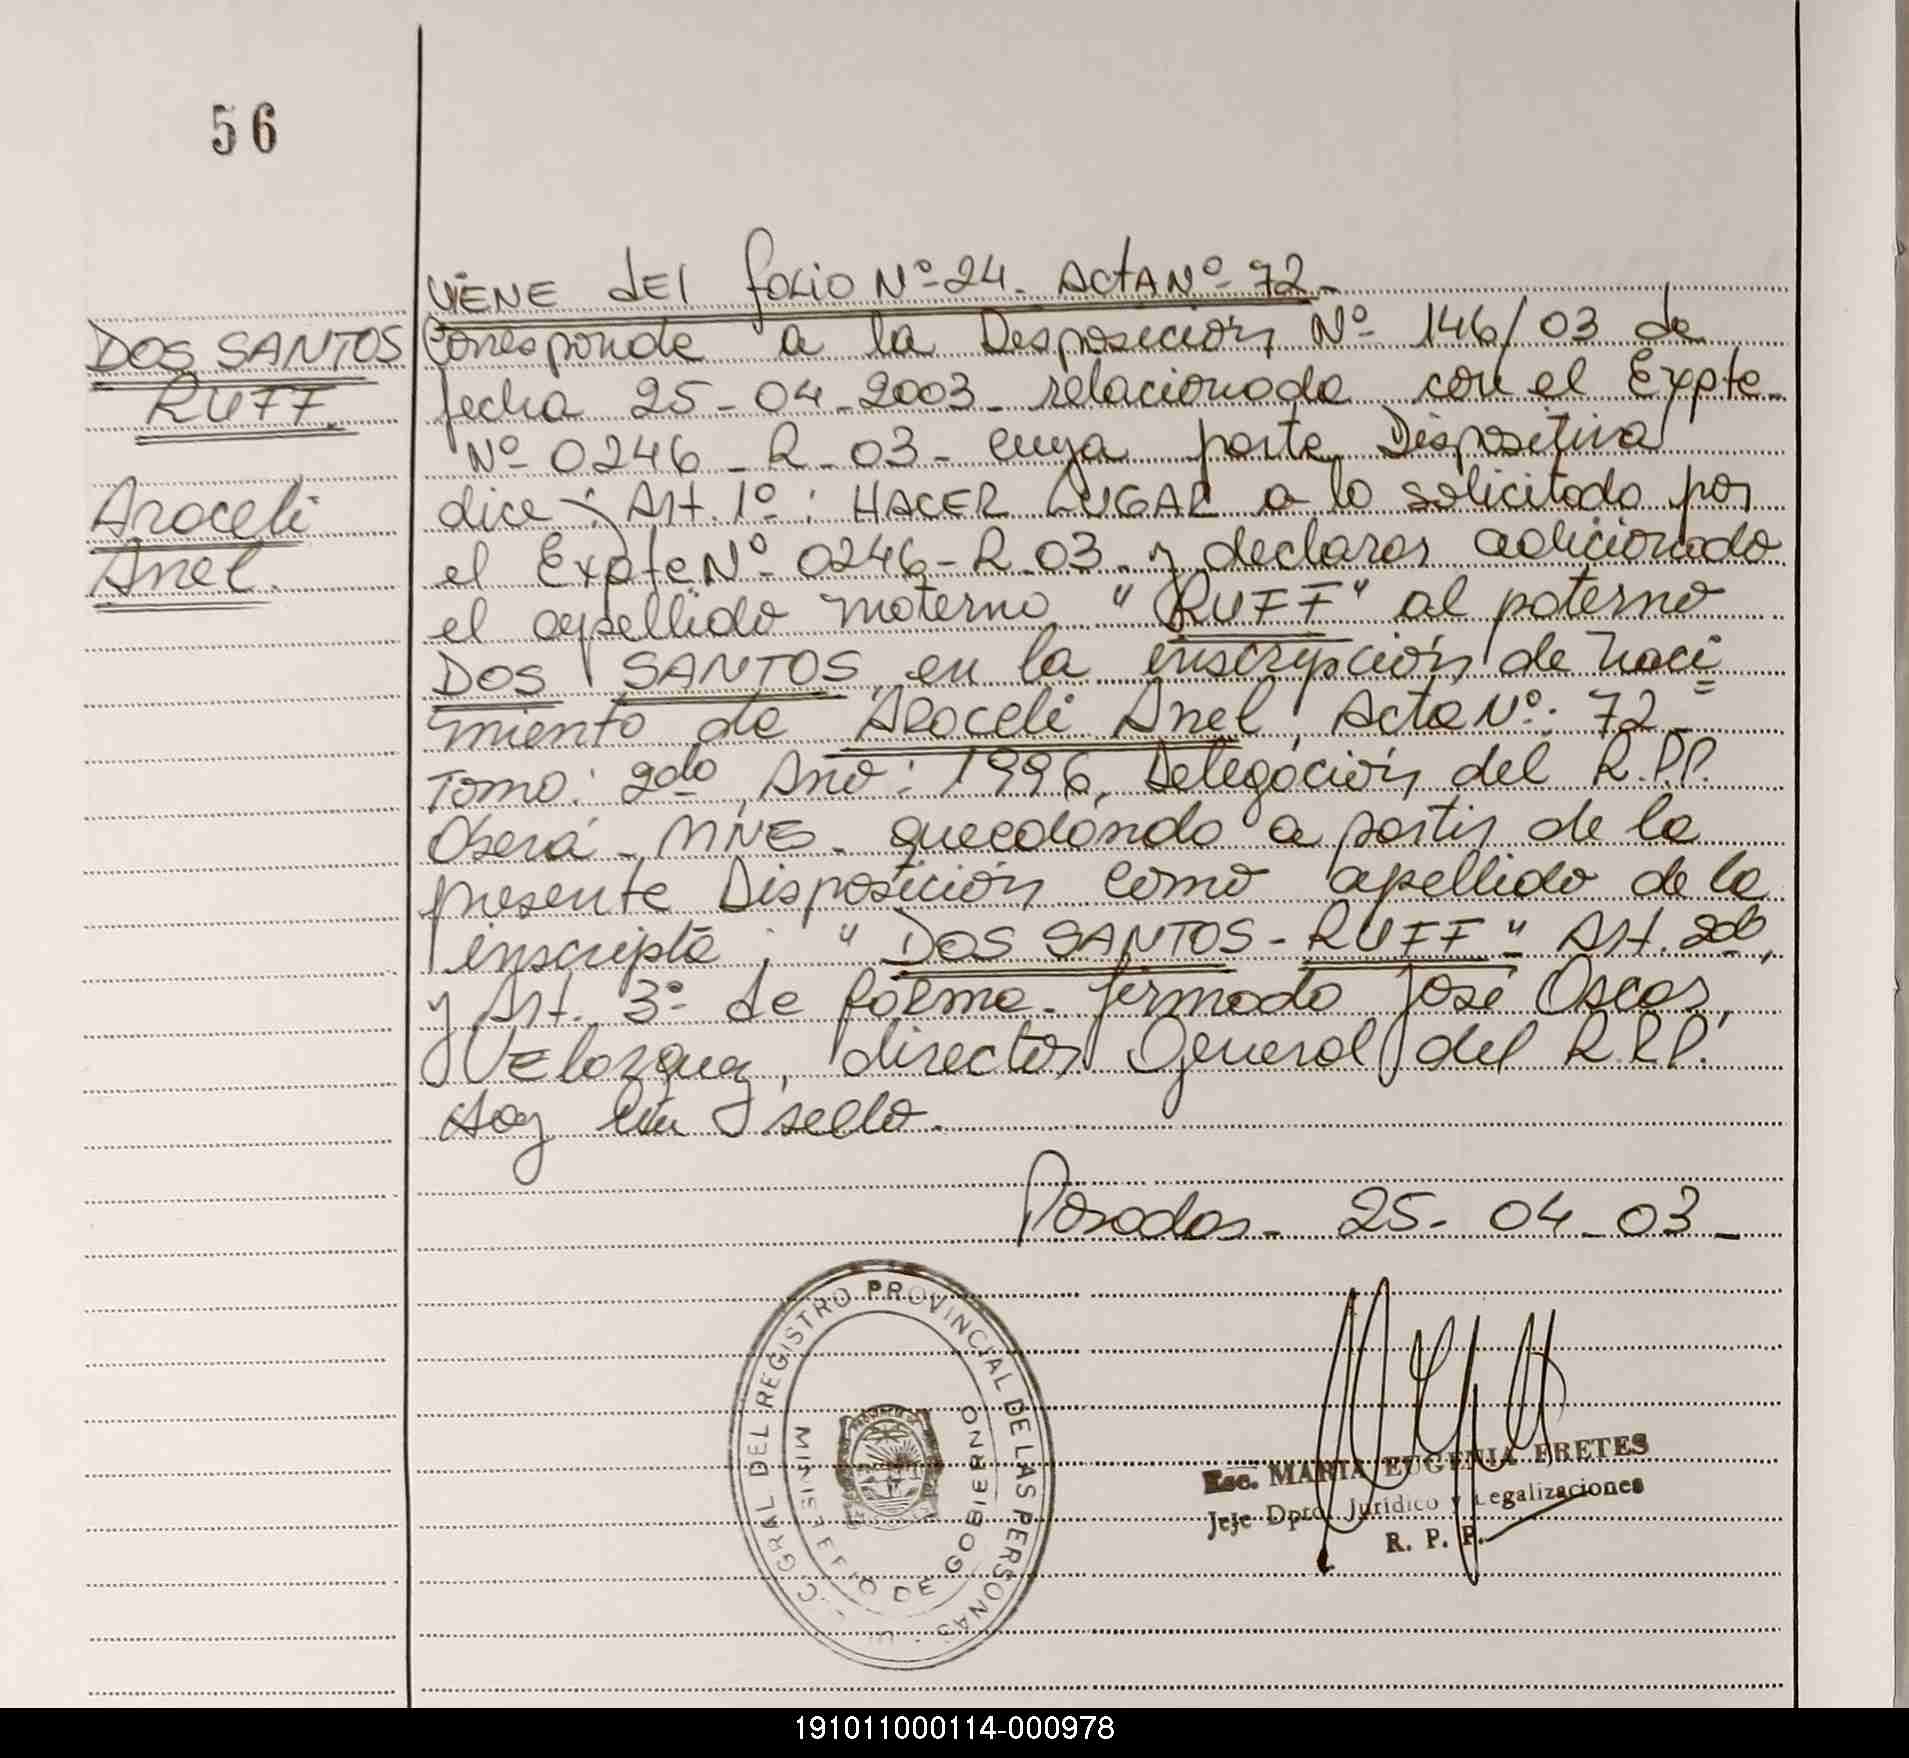 56
VIENE dEl folio Nº 24. ActA Nº 72.-
DOS SANTOS
RUFF
Araceli
Anel.
Corresponde a la Disposición Nº 146/03 de
fecha 25-04-2003- relacionada con el Expte-
Nº 0246-R-03- cuya parte Dispositiva
dice: Art. 1º: HACER LUGAR a lo solicitado por
el Expte Nº 0246-R-03- y declarar adicionado
el apellido materno "RUFF" al paterno
DOS SANTOS en la inscripción de naci=
miento de Araceli Anel, Acta Nº: 72-
Tomo: 2do, Año: 1996, Delegación del R.P.P.
Oberá - MNES - quedando a partir de la
presente Disposición como apellido de la
inscripta: "DOS SANTOS-RUFF" Art. 2do,
y Art. 3º de forma. firmado José Oscar
Velozquez, director General del R.P.P.
Hay un sello.
Posadas- 25-04-03-
C. GRAL DEL REGISTRO PROVINCIAL DE LAS PERSONAS
MINISTERIO DE GOBIERNO
Esc. MARIA EUGENIA FRETES
Jefe Dpto. Jurídico y Legalizaciones
R. P. P.
191011000114-000978